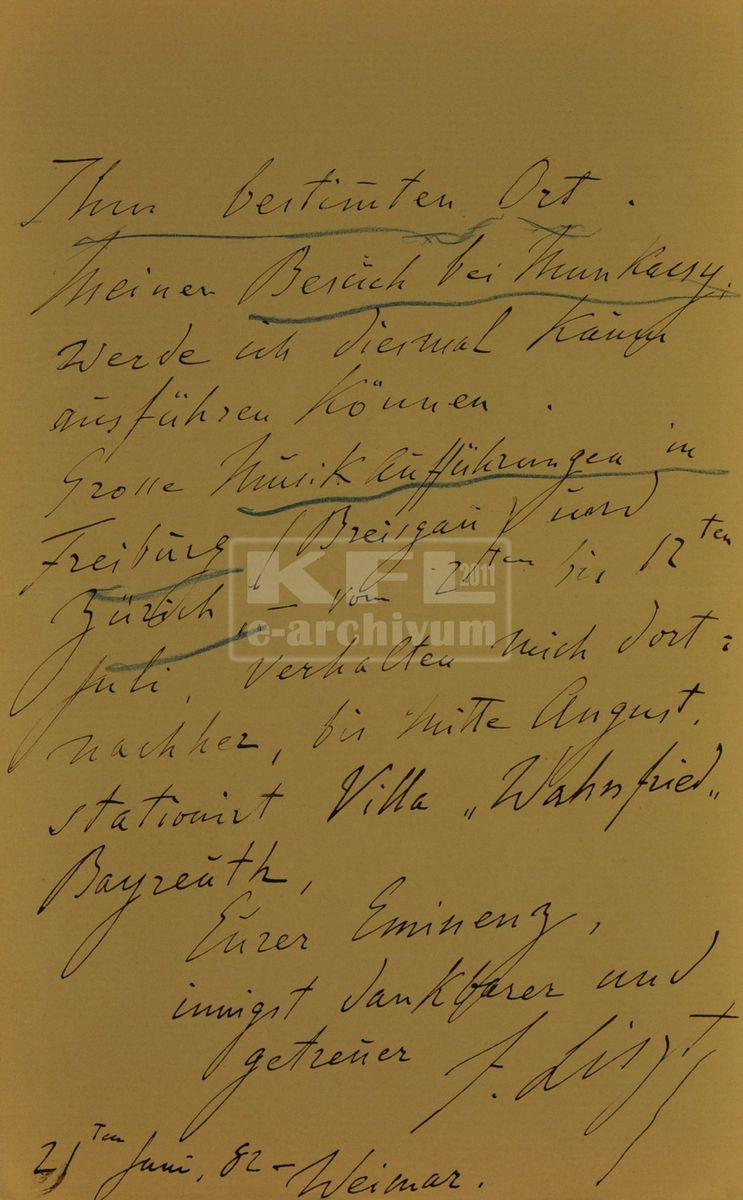 Ihnen bestim̄ten Ort.
Meinen Besuch bei Munkacsy,
werde ich diesmal kaum
ausführen können.
Grosse Musikaufführungen in
Freiburg (Breisgau) und
Zürich, – vom 2ten bis 12ten
Juli, verhalten mich dort –
nachher, bis Mitte August,
stationirt Villa „Wahnfried„
Bayreuth,
Eurer Eminenz,
innigst dankbarer und
getreuer F. Liszt
21ten Juni, 82 – Weimar.
KFL 2011
e-archivum